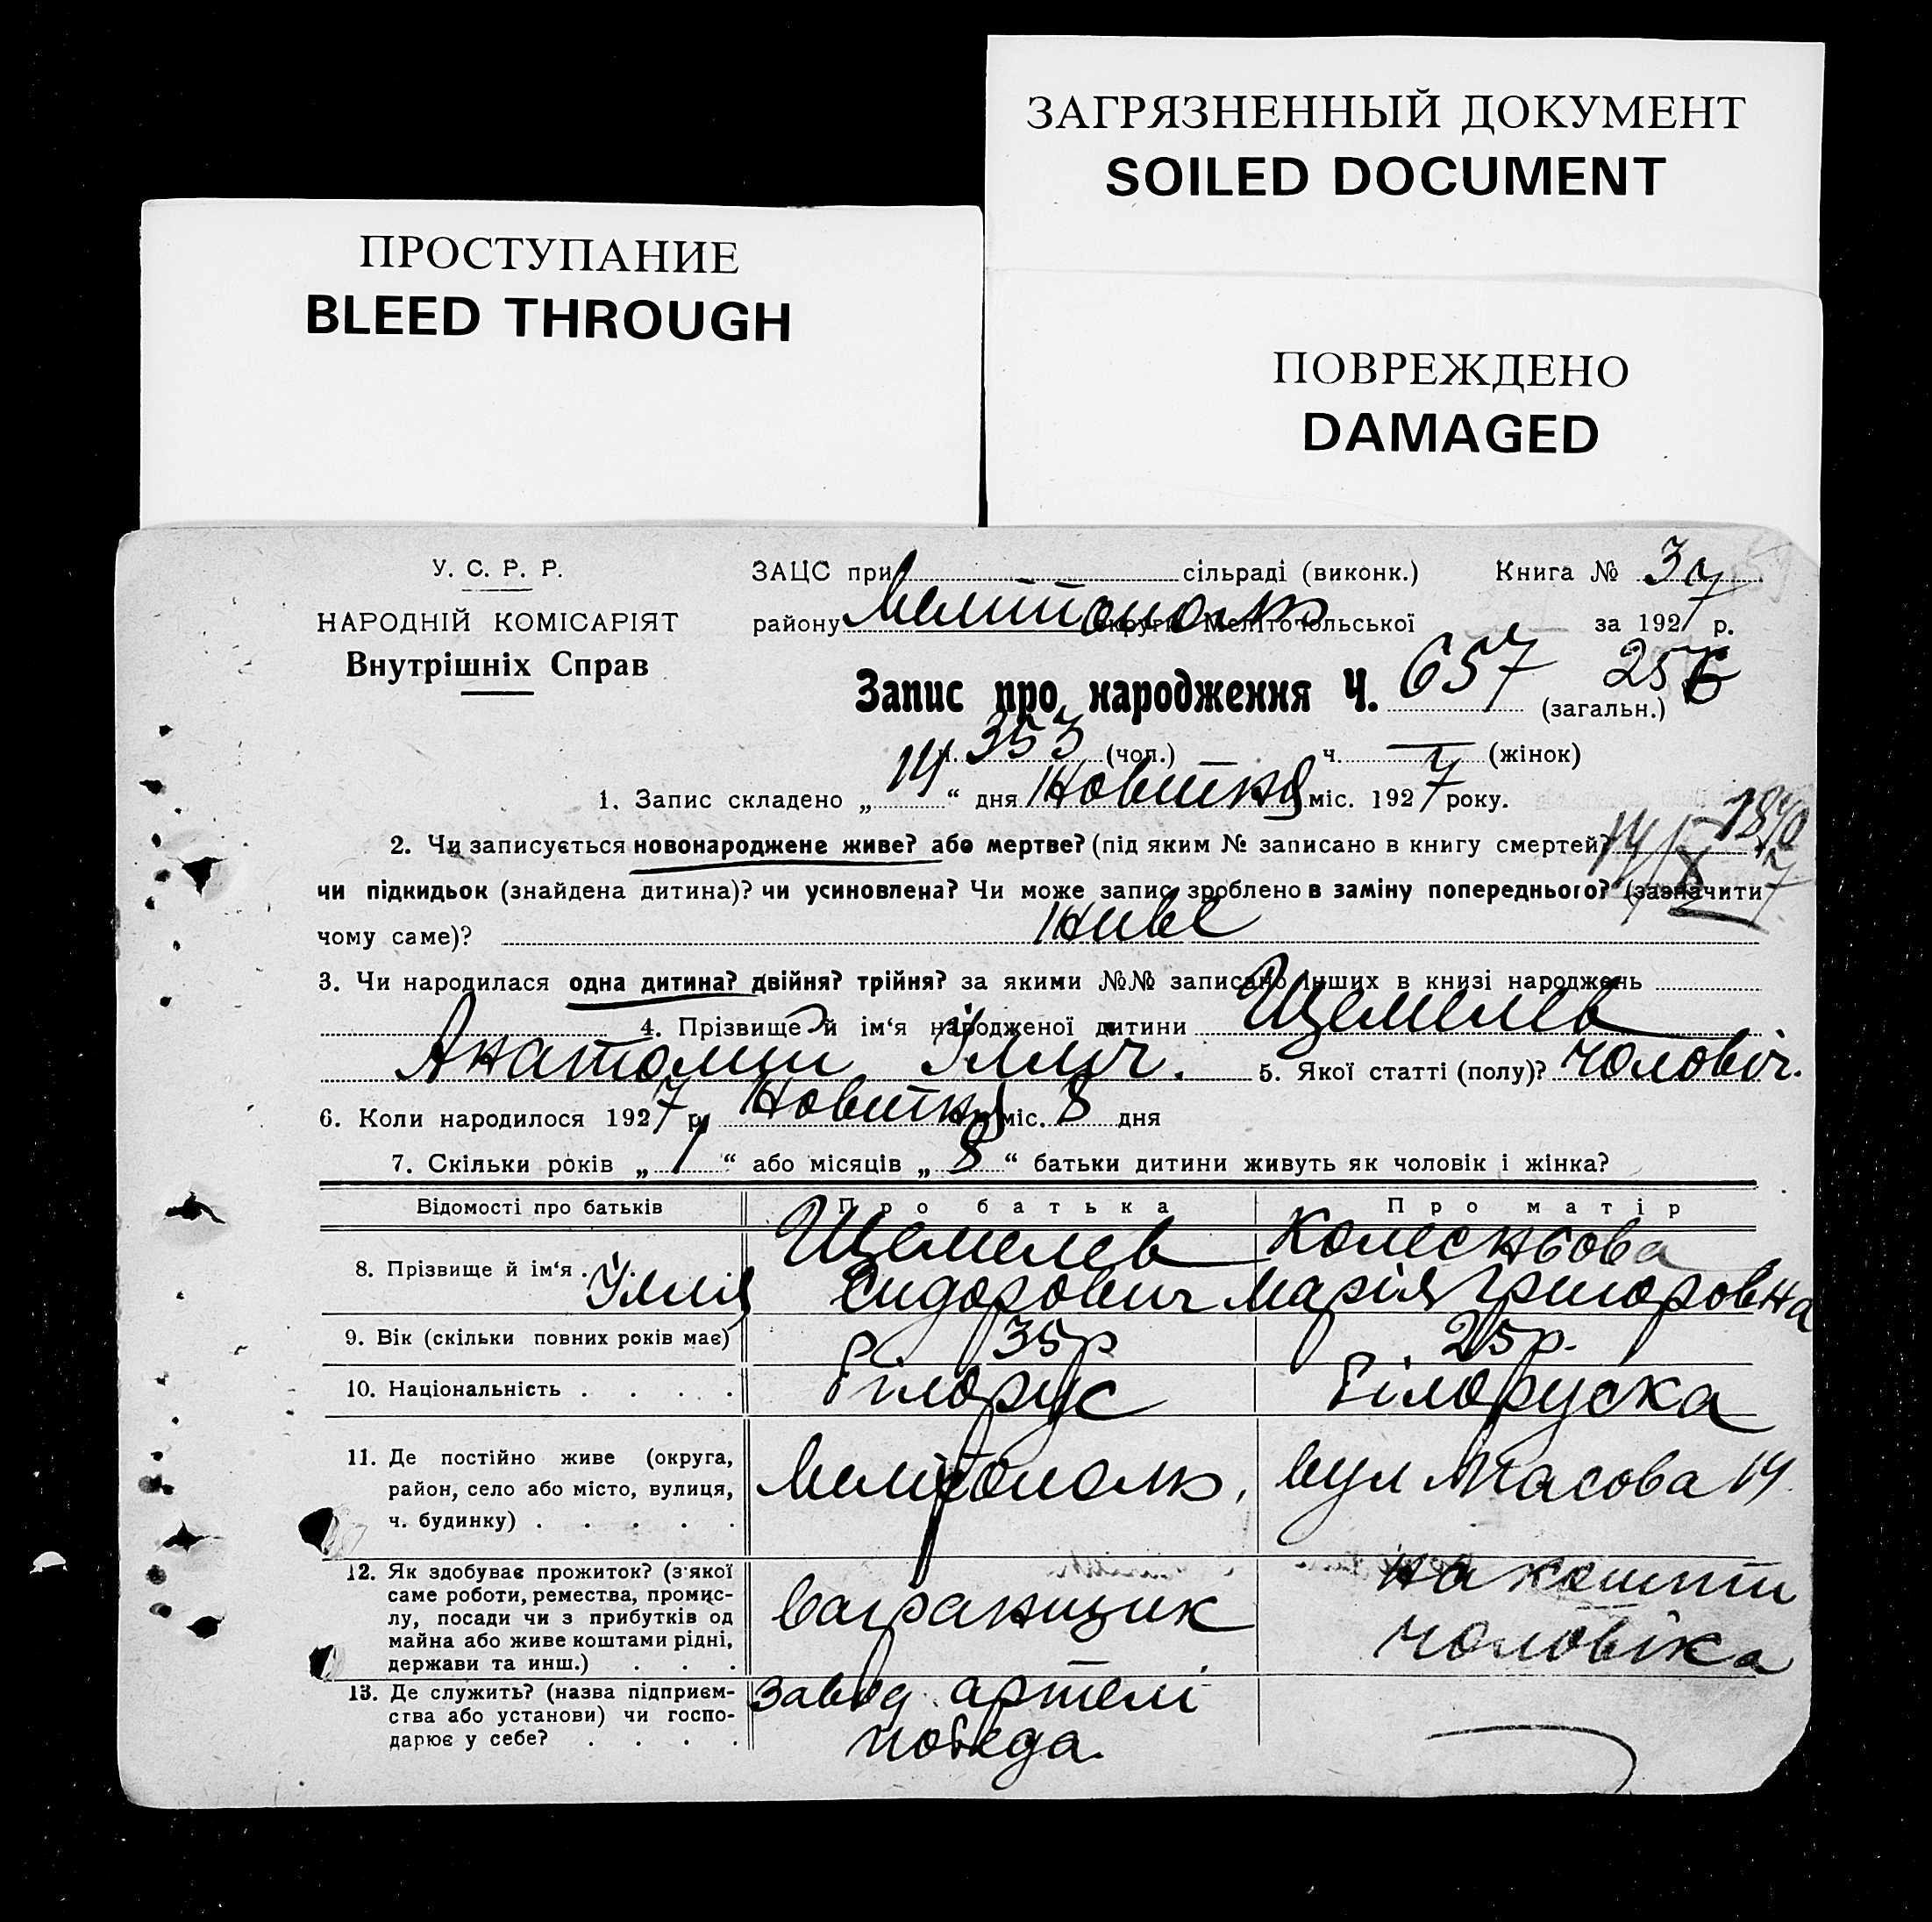 ЗАГРЯЗНЕННЫЙ ДОКУМЕНТ
SOILED DOCUMENT
ПРОСТУПАНИЕ
BLEED THROUGH
ПОВРЕЖДЕНО
DAMAGED
У. С. Р. Р.
НАРОДНІЙ КОМІСАРІЯТ
Внутрішніх Справ
ЗАЦС при сільраді (виконк.) Книга № 3
району Мелітополь округи Мелітопольської за 1927 р.
Запис про народження Ч. 657 (загальн.) 256
ч. 353 (чол.) ч. — (жінок)
1. Запис складено „14“ дня Жовтня міс. 1927 року.
2. Чи записується новонароджене живе? або мертве? (під яким № записано в книгу смертей?
чи підкидьок (знайдена дитина)? чи усиновлена? Чи може запис зроблено в заміну попереднього? (зазначити
чому саме)? Живе
3. Чи народилася одна дитина? двійня? трійня? за якими №№ записано інших в книзі народжень
4. Прізвище й ім‘я народженої дитини Щемелев
Анатолий Ілліч. 5. Якої статті (полу)? чоловіч.
6. Коли народилося 1927 р. Жовтня міс. 8 дня
7. Скільки років „1“ або місяців „8“ батьки дитини живуть як чоловік і жінка?
Відомості про батьків Про батька Про матір
8. Прізвище й ім‘я . Щемелев Ілля Сидорович Марія Григоровна
9. Вік (скільки повних років має) 35р 25р.
10. Національність . . . . . Білорус Білоруска
11. Де постійно живе (округа,
район, село або місто, вулиця,
ч. будинку) . . . . . Мелітополь, вул Масова 14
12. Як здобуває прожиток? (з якої
саме роботи, ремества, промис-
лу, посади чи з прибутків од
майна або живе коштами рідні,
держави та инш.) . . . Вагранщик на кошти
чоловіка
13. Де служить? (назва підприєм-
ства або установи) чи госпо-
дарює у себе? . . . . Завод артелі
победа.